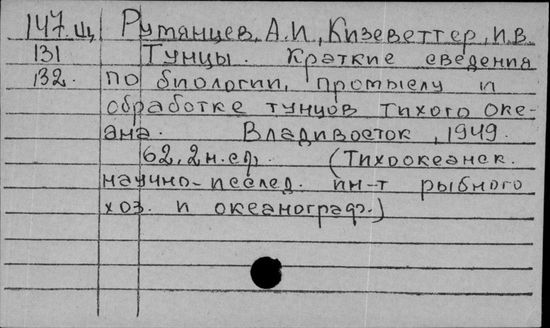 147 Щ Румянцев, А.И., Кизеветтер, И.В.
131 Тунцы. Краткие сведения
132. по биологии, промыслу и
обработке тунцов Тихого Оке-
ана. Владивосток, 1949.
62, 2 н.ср. (Тихоокеанск.
научно-исслед. ин-т рыбного
хоз. и океанограф.)